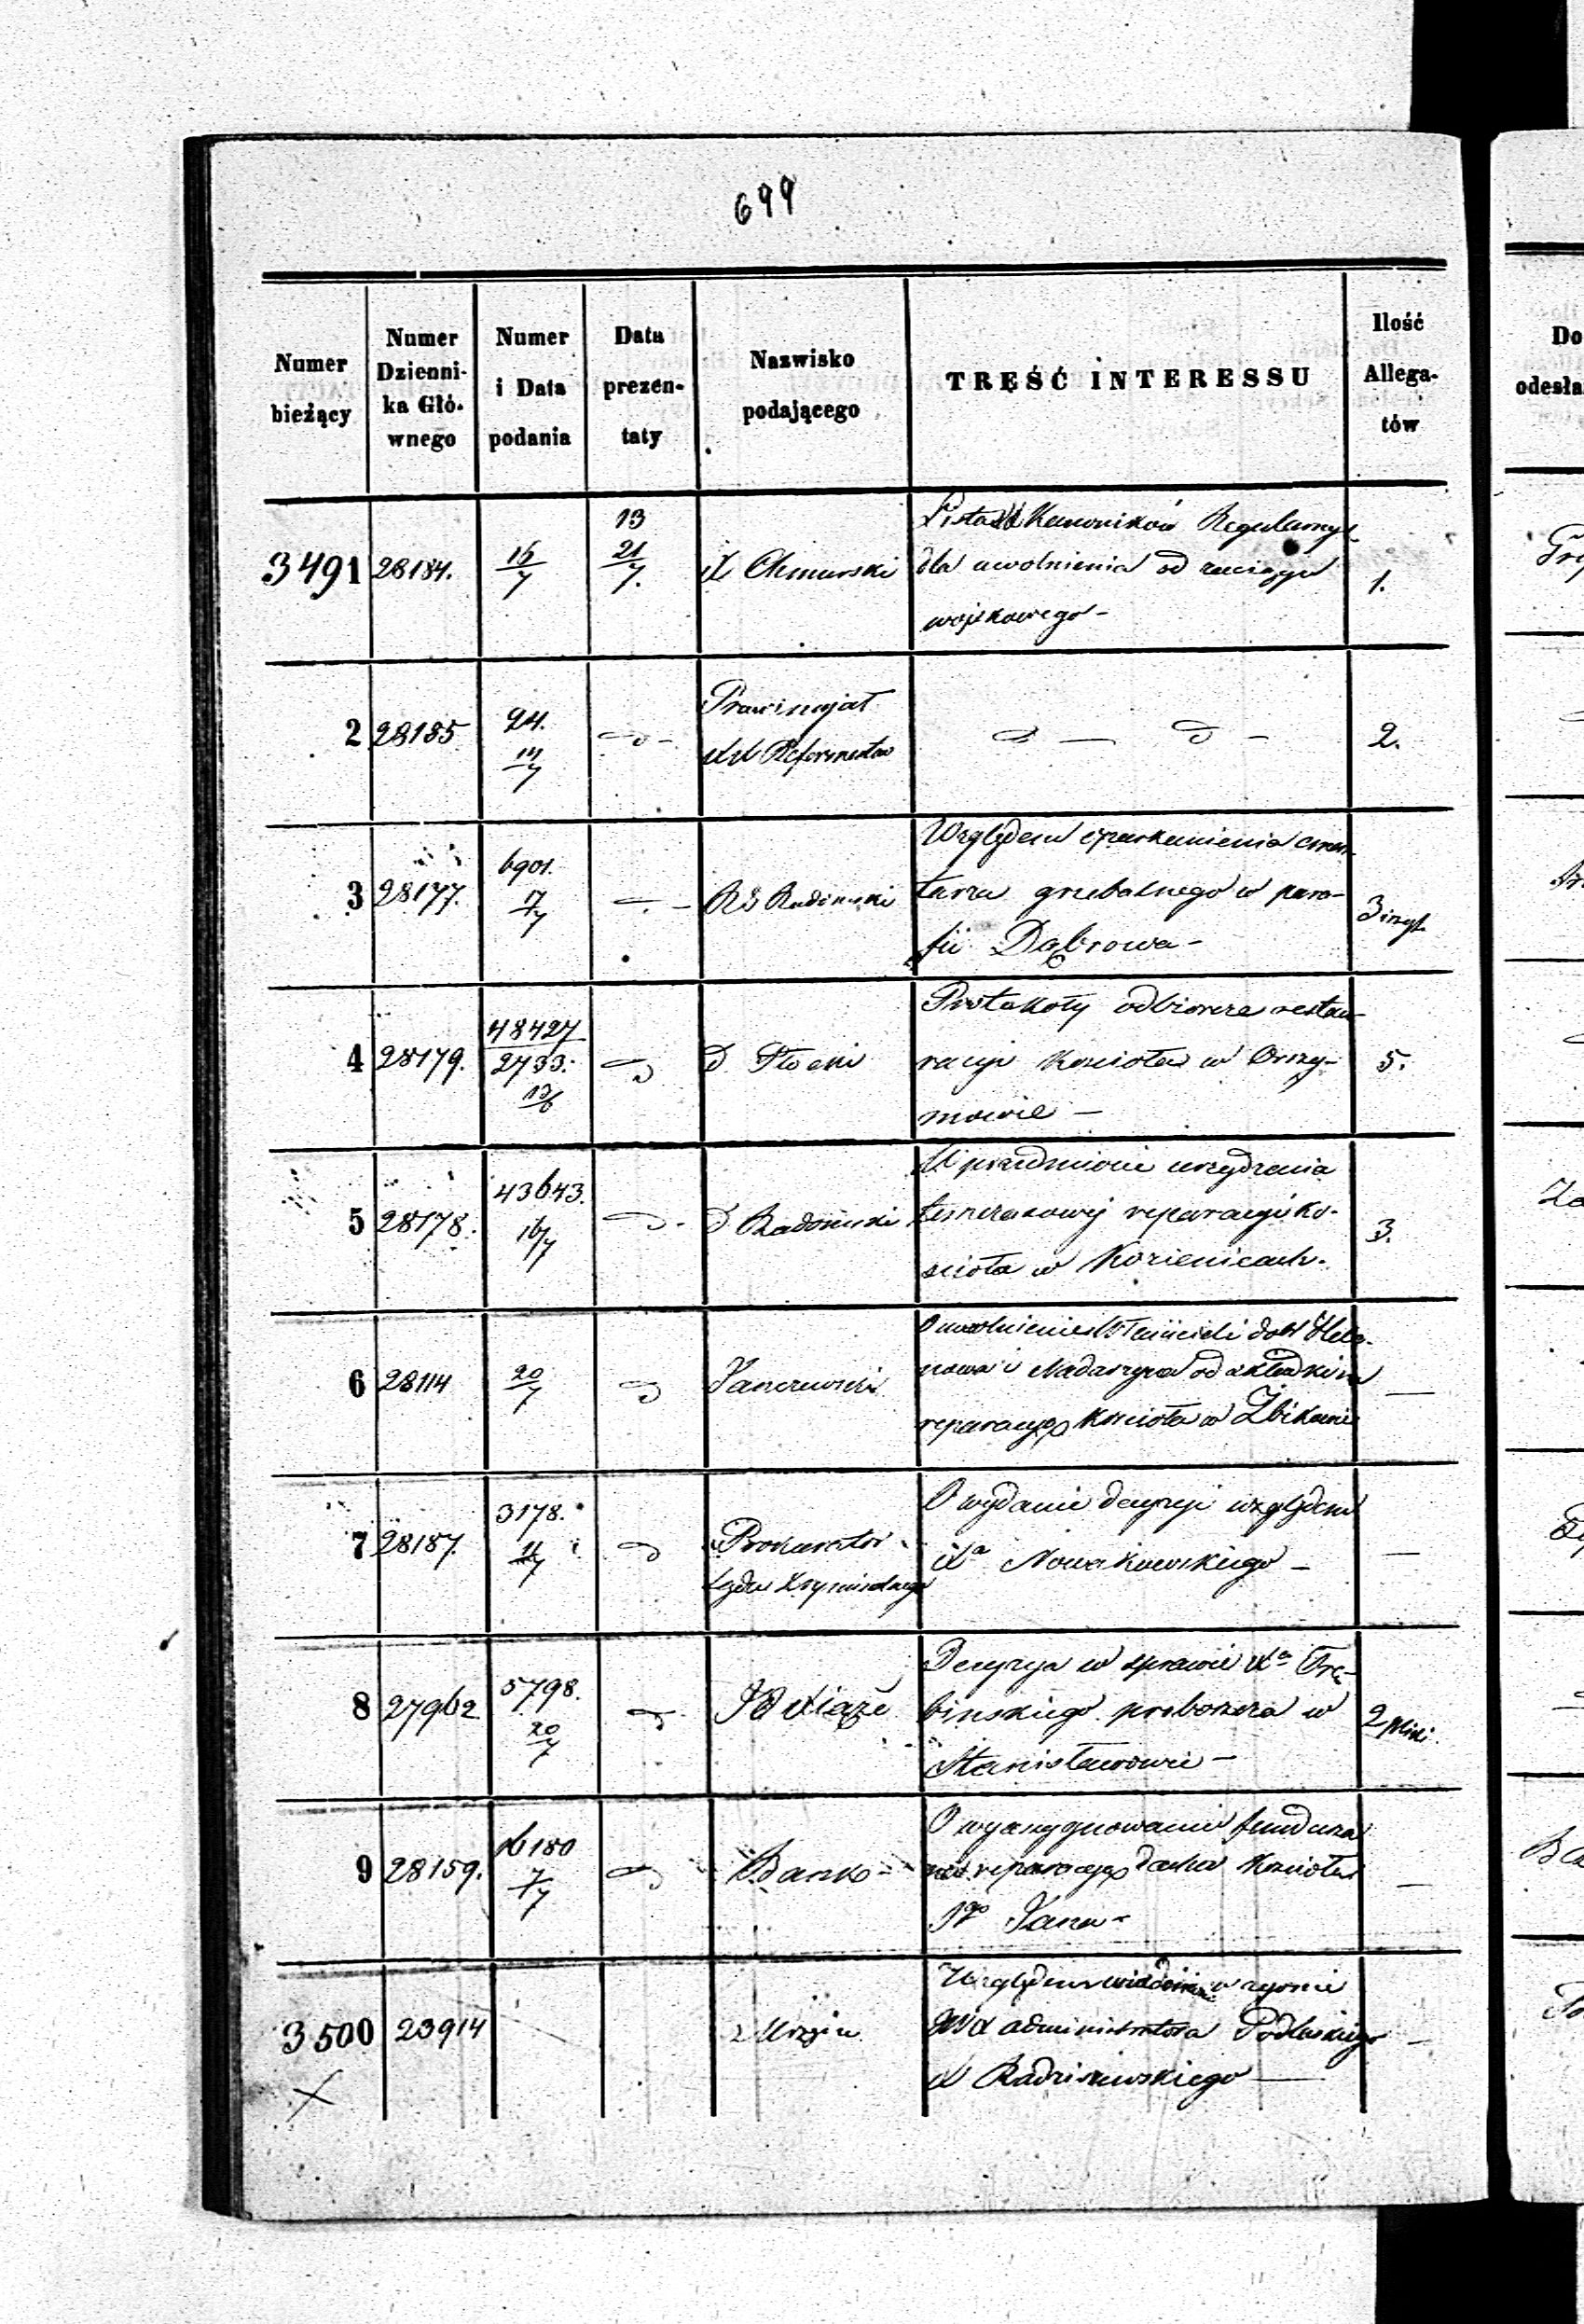 699
Numer bieżący
Numer Dzienni- ka Głó- wnego
Numer i Data podania
Data prezen- taty
Nazwisko podającego
TREŚĆ INTERESSU
Ilość Allega- tów
Do
odesła
3491 28184. 16/7 13 21/7. X Chmurski
Lista XX Kanoników Regularnych
dla uwolnienia od zaciągu
wojskowego -
1.
2 28185 24. 14/7 -D- Prowincjał
XX Reformatów
D — D -
2.
3 28177. 6901. 17/7 RG Radomski
Względem oparkanienia cmen-
tarza grzebalnego w para-
fii Dąbrowa -
3
4 28179. 48427 2733. 13/6 D D Płocki
Protokoły odbiorcze restau-
racyi kościoła w Orszy-
mowie —
5.
5 28178. 43643. 16/7 D - D Radomski
W przedmiocie urządzenia
tymczasowej reparacyi ko-
ścioła w Kozienicach.
3.
6 28114 20/7 D Janczewski
O uwolnienie Właścicieli dóbr Hele-
nowa i Nadarzyna od składki na
reparacyą kościoła w Żbikowie
—
7 28187. 3178. 11/7 D Prokurator
Sądu Kryminalnego
O wydanie decyzyi względem
Xa Nowakowskiego —
—
8 27962 5798. 20/7 D JO Xiąże
Decyzya w sprawie Xa Trę-
binskiego proboszcza w
Stanisławowie -
2 pliki
9 28159. 16180 7/7 D Bank -
O wyasygnowanie funduszu
na reparacyą dachu kościoła
Sgo Jana -
—
3500 23914 z Urzędu
Względem w rysonie
JWX administratora Podlaskiego
X Radziszewskiego —
—